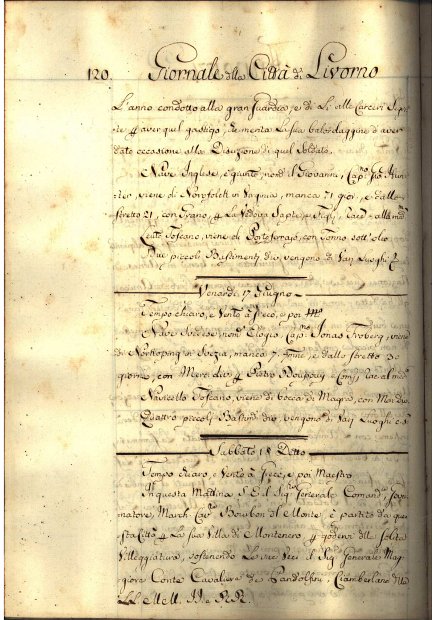 120. Giornale della Città di Livorno
L'anno condotto alla gran Guardia, e di Li alle Carceri
te p aver quel gastigo, che merita la sua balordaggine d'aver
dato occasione alla Diserzione di quel Soldato.
Nave Inglese, è giunta, nom. il Giovanni, Cap.no Gio.
viene di Norfolck in Virginia, manca 71 gior., e dallo
stretto 21, con Grano, p La Vedova
Leuto Toscano, viene di Portoferrajo, con Tonno sott'olio
Due piccoli Bastimenti div. vengono di Varj Luoghi
Venerdi 17 Giugno
Tempo chiaro, Vento à Greco, e poi
Nave Svedese, nom. Cap.no Jonas Froberg, viene
di Norkoping in Svezia, manca 7. e dallo stretto 30
giorni, con Merci div. p Pietro e Comp.
Navicello Toscano, viene di bocca di Magra, con Mer. div.
Quattro piccoli Bastim. div. vengono di Varj Luoghi
Sabbato 18 Detto
Tempo chiaro, Vento à Greco, e poi Maestro
In questa Mattina S. E. il Sig.re Generale Comand.e Gover
natore March. Cav.re Bourbon del Monte, è partito da que
sta Città p La sua Villa di Montenero, p godervi della solita
Villeggiatura, sostenendo Le sue Veci il Sig.re Generale Mag
giore Conte Cavaliere de Pandolfini, Ciamberlano delle
LL. MM. II. e RR.